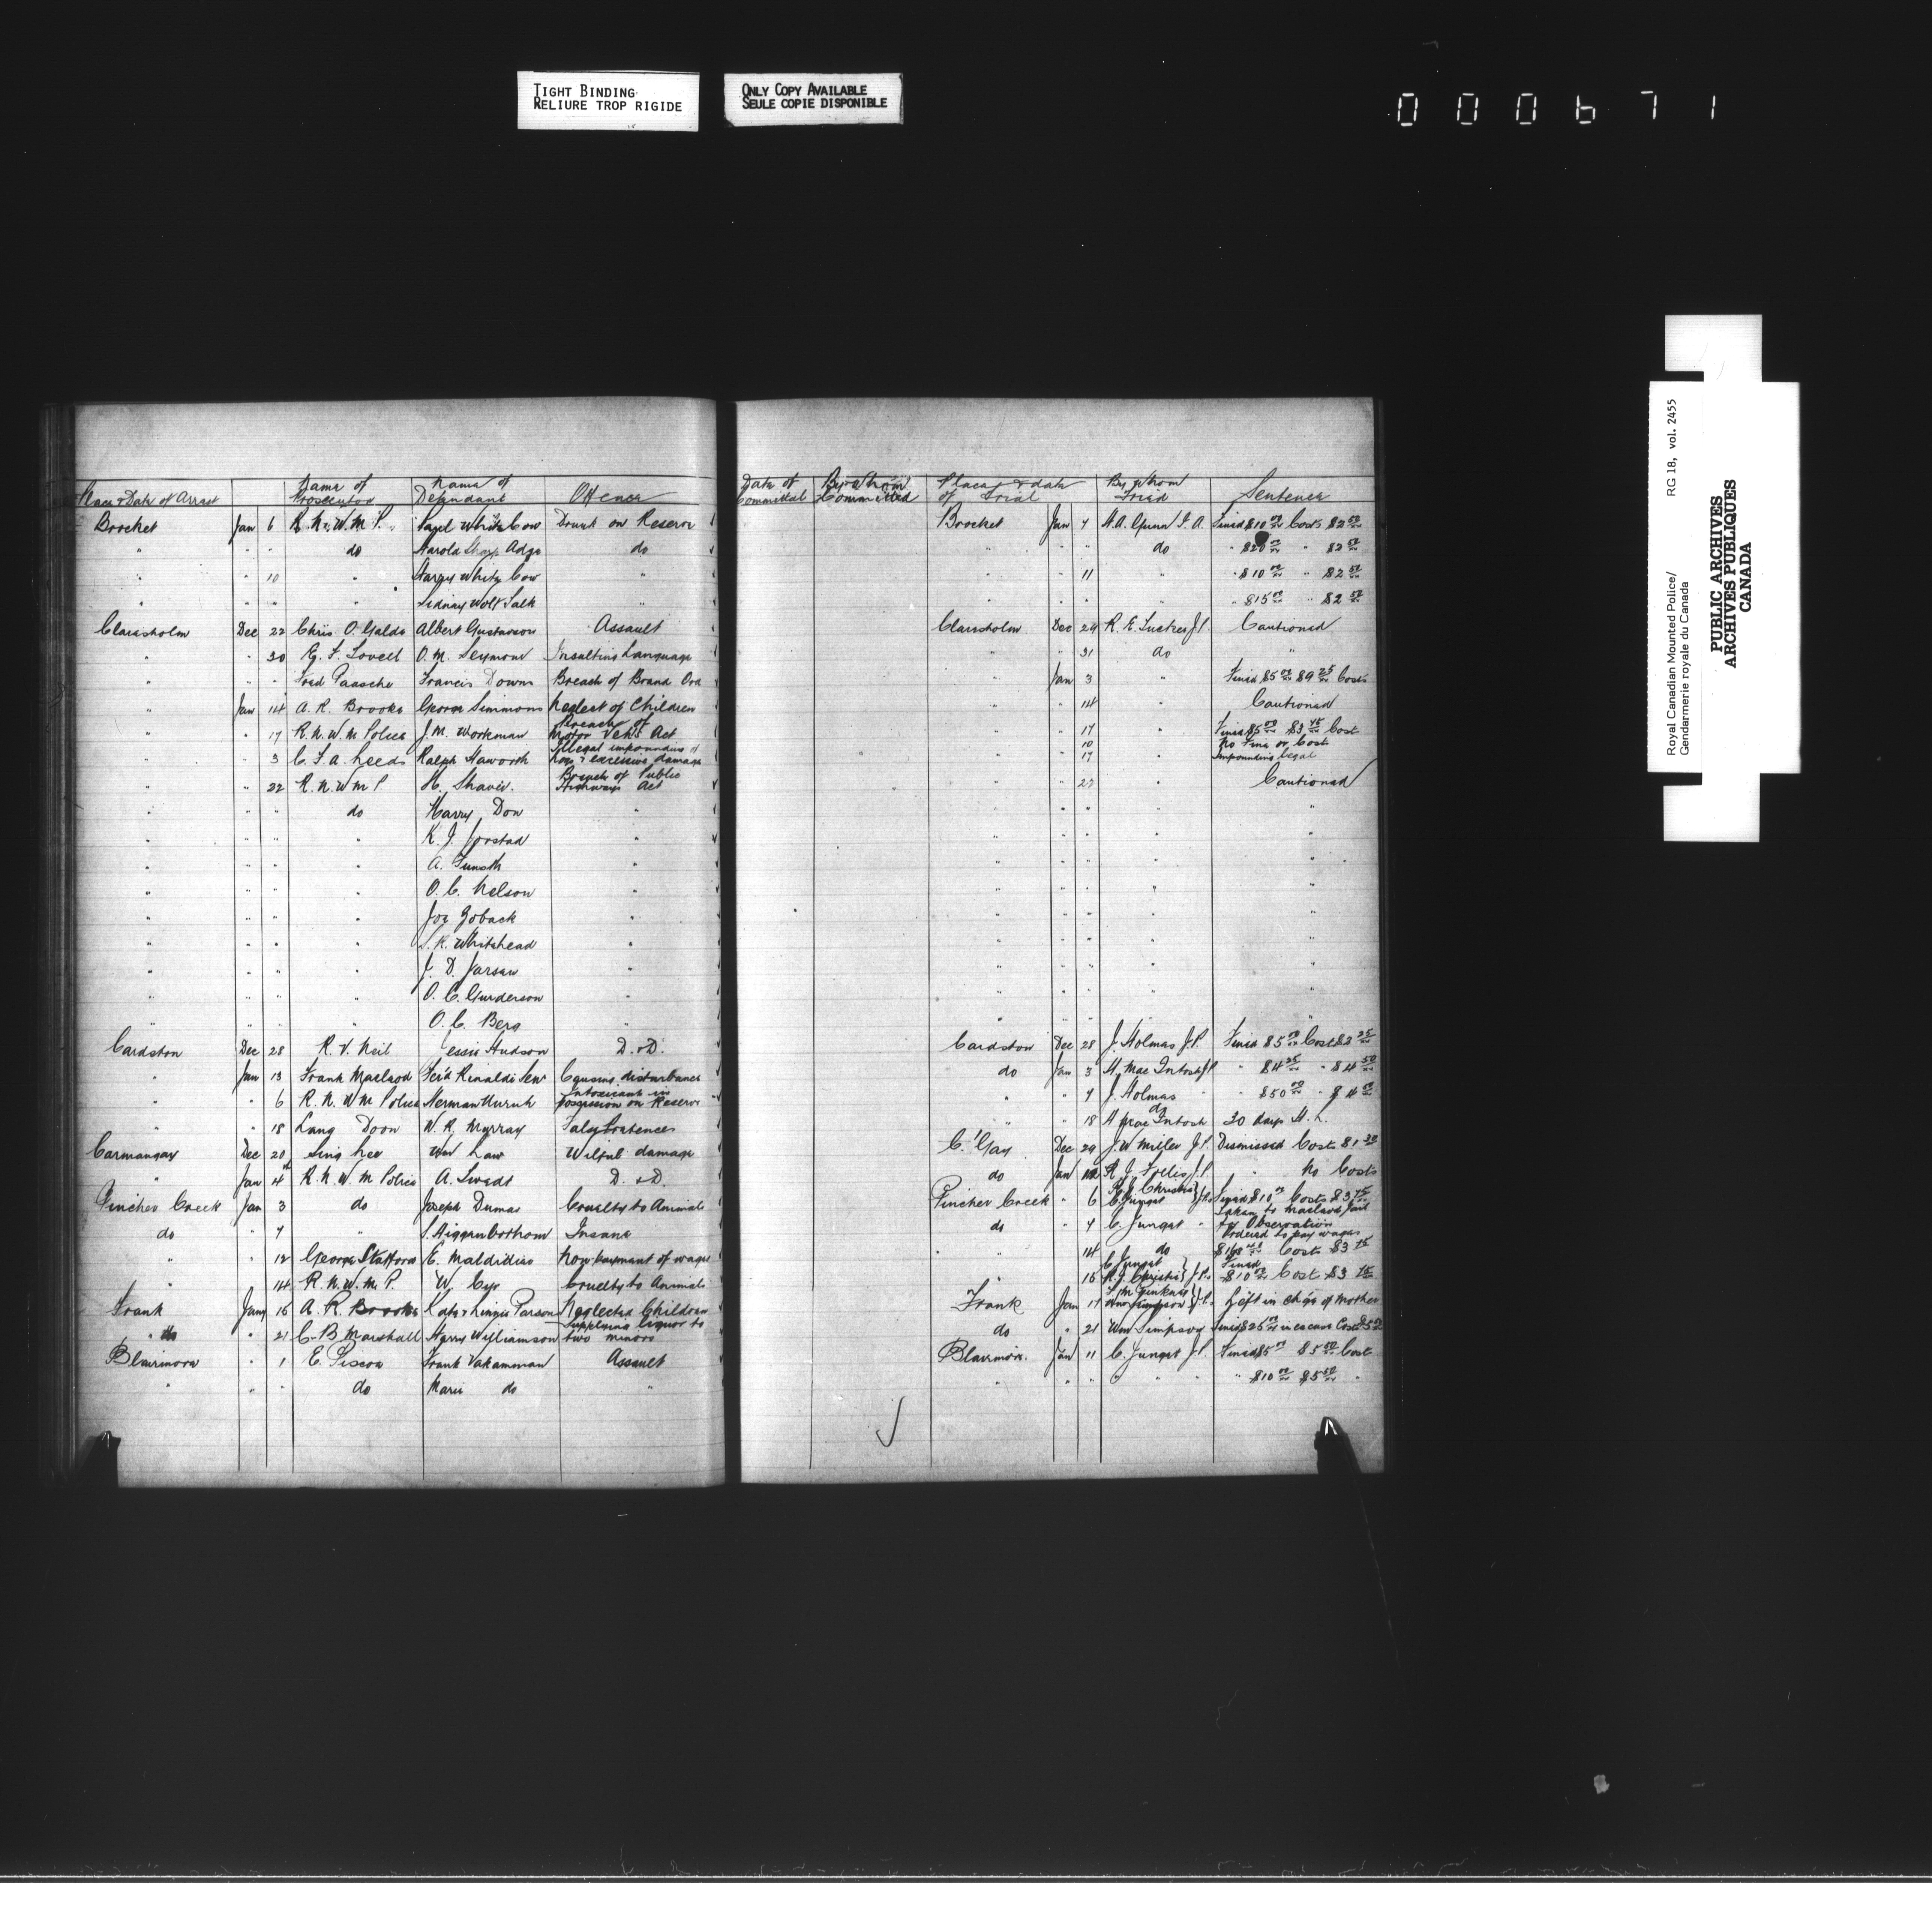 TIGHT BINDING
RELIURE TROP RIGIDE
ONLY COPY AVAILABLE
SEULE COPIE DISPONIBLE
000671
Royal Canadian Mounted Police/ RG 18, vol. 2455
Gendarmerie royale du Canada
PUBLIC ARCHIVES
ARCHIVES PUBLIQUES
CANADA
Place & Date of Arrest Name of Prosecutor Name of Defendant Offence Date of Committal By Whom Committed Place & date of Trial By Whom Tried Sentence
Brocket Jan 6 R.N.W.M.P. White Cow Drunk on Reserve Brocket Jan 7 H.A. Gunn I.A. Fined $10 00 Costs $2 50
" " " do Harold Sharp Adge do " " " do " $20 00 " $2 50
" " 10 " Harry White Cow " " " 11 " " $10 00 " $2 50
" " " " Sidney Wolf Salk " " " " " " $15 00 " $2 50
Claresholm Dec 22 Chris O. Galde Albert Gustavson Assault Claresholm Dec 24 R.E. J.P. Cautioned
" " 30 F. Lovell O.M. Seymour Insulting Language " " 31 do "
" " " Fred Paasche Francis Downs Breach of Brand Ord " Jan 3 " Fined $5 00 $9 25 Costs
" Jan 14 A.R. Brooks George Simmons Neglect of Children " " 14 " Cautioned
" " 17 R.N.W.M Police J.M. Workman Breach of Motor Veh. Act " " 17 " Fined $5 00 $3 45 Cost
" " 3 C.F.A. Leeds Ralph Haworth Illegal impounding & excessive damage " " 10 17 " No Fine or Cost Impounding legal
" " 22 R.N.W.M P H. Shaver. Breach of Public Highways Act " " 22 " Cautioned
" " " do Harry Don " " " " " "
" " " " K.J. Jorstad " " " " " "
" " " " A. " " " " " "
" " " " O.C. Nelson " " " " " "
" " " " Joe Goback " " " " " "
" " " " S.R. Whitehead " " " " " "
" " " " J.D. " " " " " "
" " " " O.C. Gunderson " " " " " "
" " " " O.C. Berg " " " " " "
Cardston Dec 28 R.V. Neil Jessie Hudson D. & D. Cardston Dec 28 J. Holmes J.P. Fined $5 00 Cost $2 25
" Jan 13 Frank Macleod Rinaldi Causing disturbance do Jan 3 H. Mac Intosh J.P " $4 25 " $4 50
" " 6 R.N.W M Police Herman Intoxicants in possession on Reserve " " 9 J. Holmes " " $50 00 " $4 00
" " 18 Lang Doon W.R. Murray False Pretences " " 18 do H Mac Intosh 30 days H.L.
Carmangay Dec 20 Sing Lee Law Wilful damage C'Gay Dec 29 J.W Miller J.P. Dismissed Cost $1 30
" Jan 4th R.N.W.M Police A. Swedt D. & D. do Jan R.J. J.P. " No Costs
Pincher Creek Jan 3 do Joseph Dumas Cruelty to Animals Pincher Creek " 6 R.J. Christie C. Jungst } J.Ps Fined $10 00 Costs $3 75
do " 7 " S. Higginbothom Insane do " 7 C. Jungst " Taken to Macleod Jail for Observation
" " 12 George Stafford E. Maldidier Non-payment of wages " " 14 do Ordered to pay wages $168 Cost $3 75
" " 14 R.N.W.M.P. W. Cyr Cruelty to Animals " " 15 C Jungst R.J. Christie } J.Ps Fined $10 00 Cost $3 75
Frank Jany 16 A.R. Brooks Kate & Linnie Parsons Neglected Children Frank Jan 17 Wm Simpson } J.Ps Left in chge of Mother
" do " 21 C.B Marshall Harry Williamson Supplying liquor to two minors do " 21 Wm Simpson Fined $25 00
Blairmore " 1 E. Piscoe Frank Vakamman Assault Blairmore. Jan 11 C. Jungst J.P. Fined $5 00 $5 50 Cost
" " " do Marie do " " " " " " " $10 00 $5 50 "